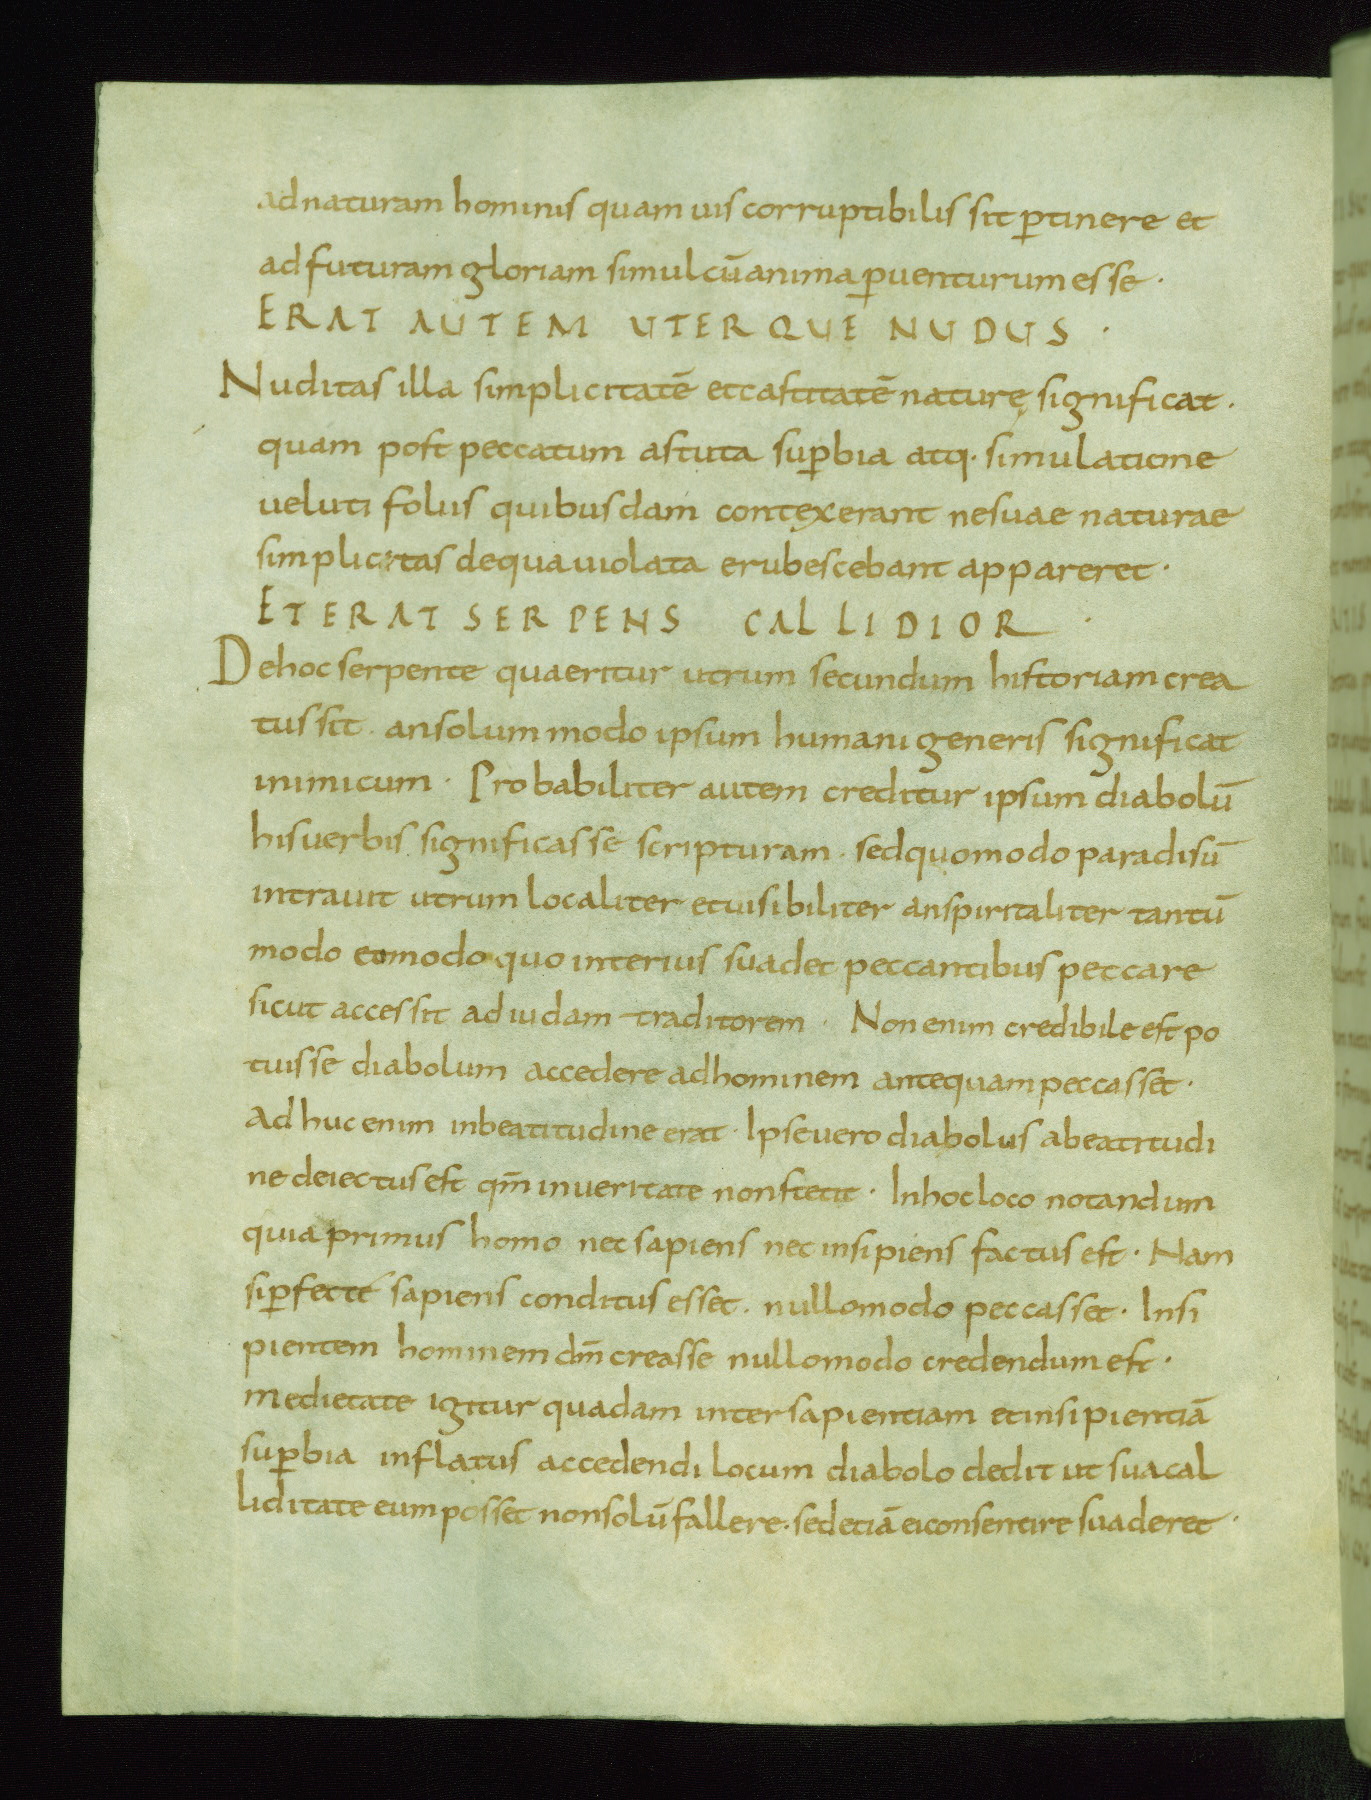 ad naturam hominis quam uis corruptibilis sit p̄tinere et
ad futuram gloriam simul cū anima p̄uenturum esse ·
ERAT AUTEM UTERQUE NUDUS ·
Nuditas illa simplicitatē et castitatē naturę significat ·
quam post peccatum astuta sup̄bia atq· simulatione
ueluti foliis quibusdam contęxerant ne suae naturae
simplicitas de qua uiolata erubescebant appareret ·
ET ERAT SERPENS CALLIDIOR ·
De hoc serpente quaeritur utrum secundum historiam crea
tus sit · an solum modo ipsum humani generis significat
inimicum · Probabiliter autem creditur ipsum diabolū
his uerbis significasse scripturam · sed quomodo paradisū
intrauit utrum localiter et uisibiliter an spiritaliter tantū
modo eo modo quo interius suadet peccantibus peccare
sicut accessit ad iudam traditorem · Non enim credibile est po
tuisse diabolum accedere ad hominem antequam peccasset ·
Adhuc enim in beatitudine erat · Ipse uero diabolus a beatitudi
ne deiectus est qm̄ in ueritate non stetit · In hoc loco notandum
quia primus homo nec sapiens nec insipiens factus est · Nam
si p̄fecte sapiens conditus esset · nullo modo peccasset · Insi
pientem hominem dm̄ creasse nullo modo credendum est ·
medietate igitur quadam inter sapientiam et insipientiā
sup̄bia inflatus accedendi locum diabolo dedit ut sua cal
liditate eum posset non solū fallere · sed etiā ei consentire suaderet ·